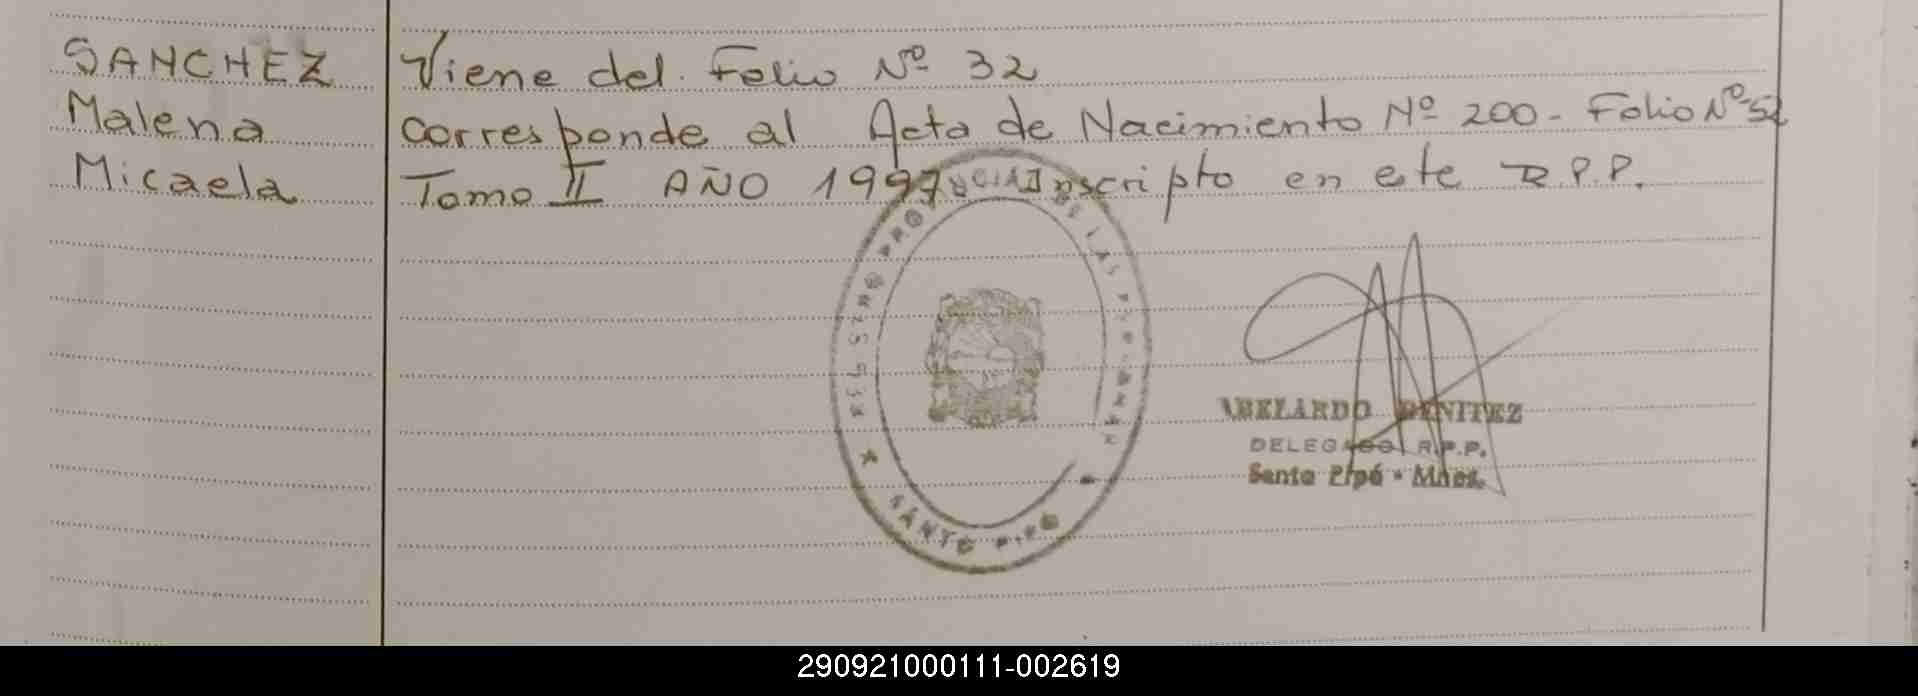 SANCHEZ
Malena
Micaela
Viene del Folio Nº 32
corresponde al Acta de Nacimiento Nº 200 - Folio Nº 52
Tomo II AÑO 1997 Inscripto en este R.P.P.
DE LAS
SANTO PIPO
ABELARDO BENITEZ
DELEGADO R.P.P.
Santo Pipó - Mnes.
290921000111-002619